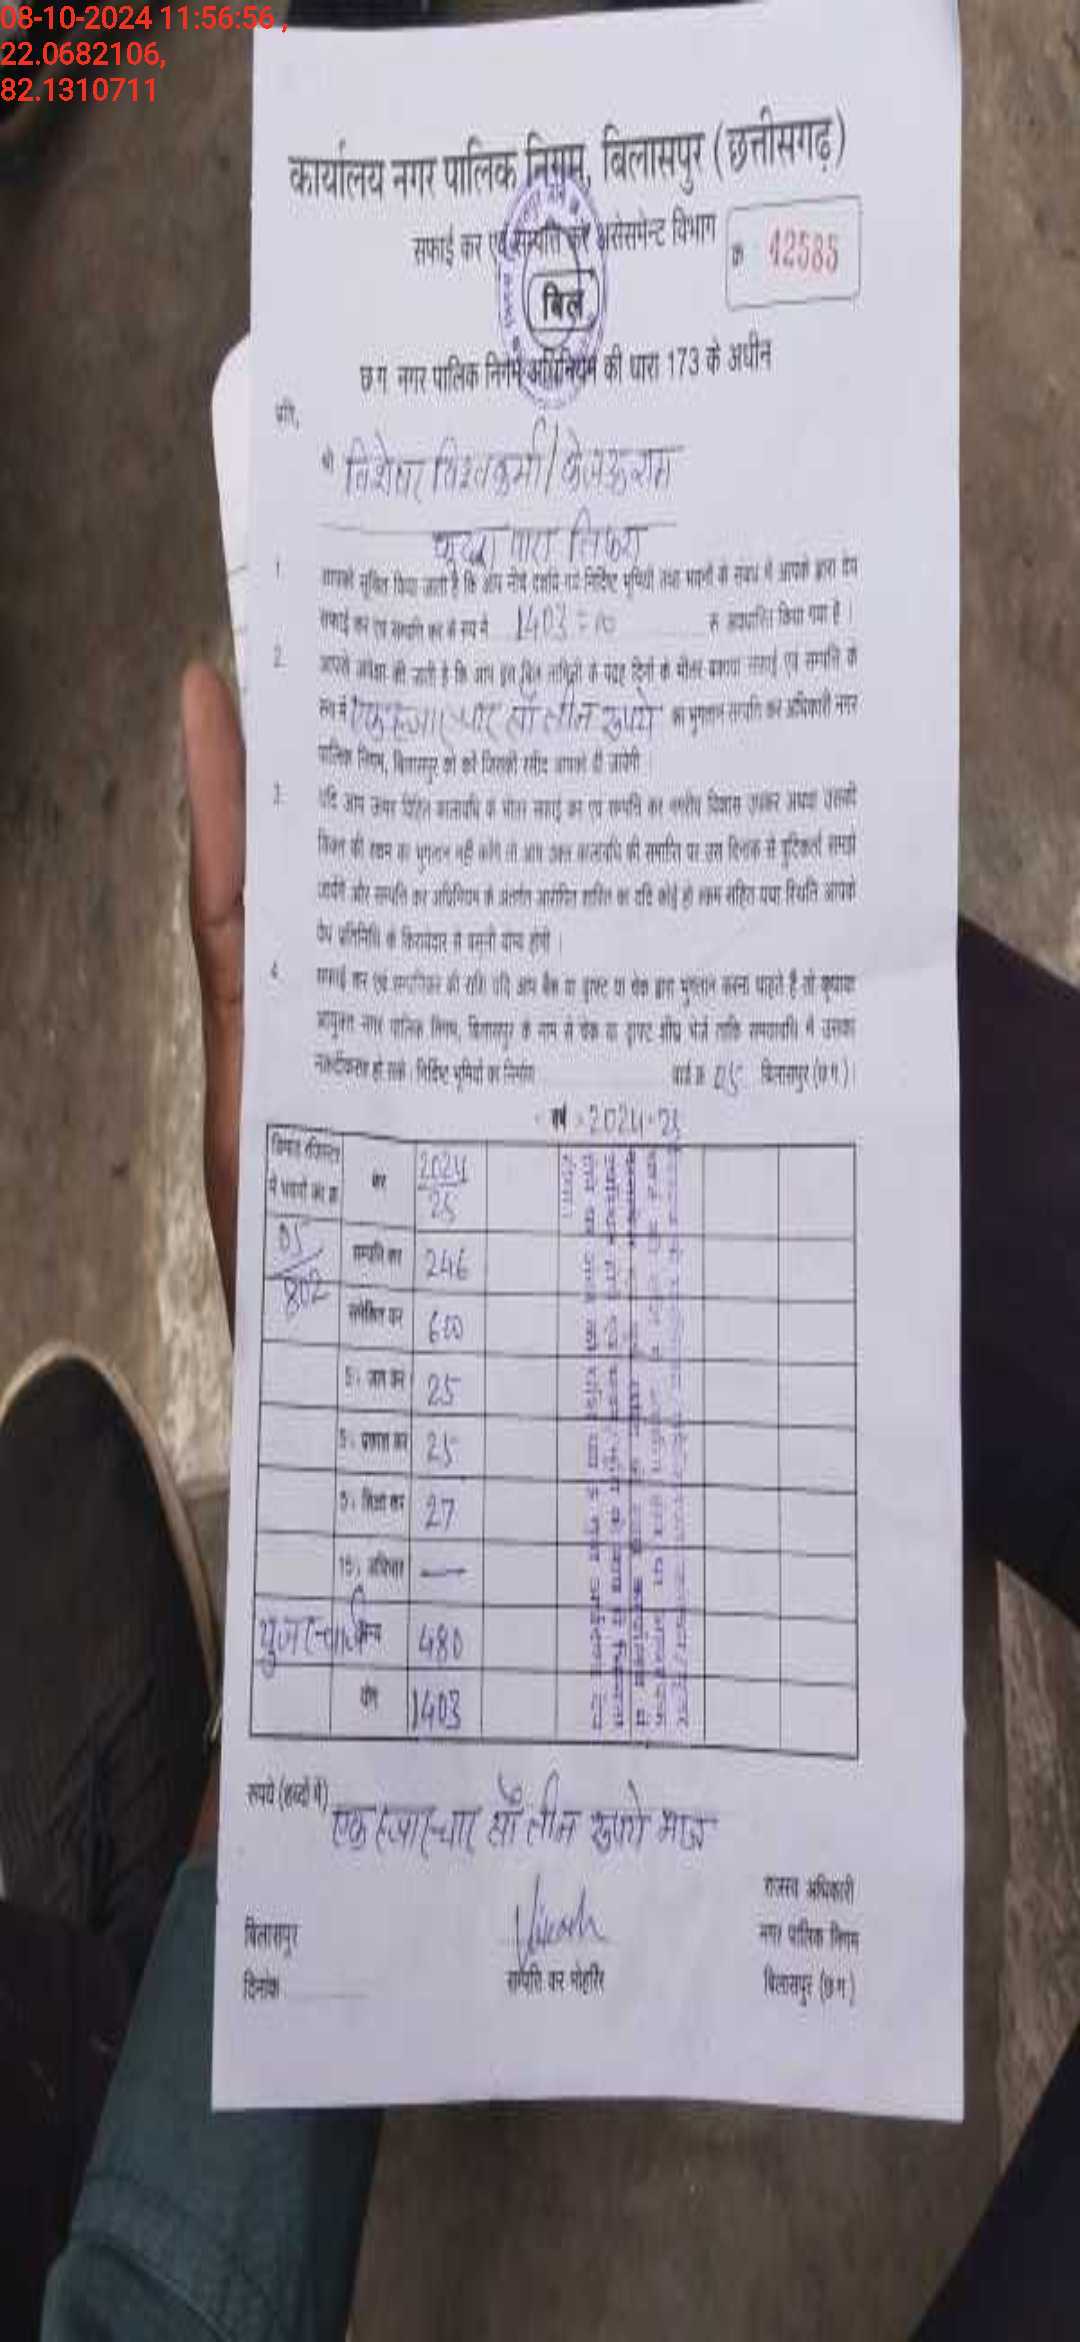 08-10-2024 11:56:56 ,
22.0682106,
82.1310711
कार्यालय नगर पालिक निगम, बिलासपुर (छत्तीसगढ़)
सफाई कर एवं सम्पत्ति कर असेसमेन्ट विभाग
क्र 42585
बिल
छ.ग. नगर पालिक निगम अधिनियम की धारा 173 के अधीन
प्रति,
श्री
विश्वकर्मा /
पारा तिफरा
1. आपको सूचित किया जाता है कि आप नीचे दर्शाये गये निर्दिष्ट भूमियों तथा भवनों के संबंध में आपके द्वारा देय
सफाई कर एवं सम्पत्ति कर के रुप में 1403=00 रु अवधारित किया गया है ।
2. आपसे अपेक्षा की जाती है कि आप इस बिल तामिली के पन्द्रह दिनों के भीतर बकाया सफाई एवं सम्पत्ति के
रुप में एक हजार चार सौ तीन रुपये का भुगतान सम्पत्ति कर अधिकारी नगर
पालिक निगम, बिलासपुर को करें जिसकी रसीद आपको दी जायेगी ।
3. यदि आप ऊपर विहित कालावधि के भीतर सफाई कर एवं सम्पत्ति कर नगरीय विकास उपकर अथवा उसकी
किश्त की रकम का भुगतान नहीं करेंगे तो आप उक्त कालावधि की समाप्ति पर उस दिनांक से त्रुटिकर्ता समझे
जायेंगे और सम्पत्ति कर अधिनियम के अंतर्गत आरोपित शास्ति का यदि कोई हो रकम सहित यथा स्थिति आपके
वैध प्रतिनिधि के किरायेदार से वसूली योग्य होगी ।
4. सफाई कर एवं सम्पत्तिकर की राशि यदि आप बैंक या ड्राफ्ट या चेक द्वारा भुगतान करना चाहते हैं तो कृपया
आयुक्त नगर पालिक निगम, बिलासपुर के नाम से चेक या ड्राफ्ट शीघ्र भेजें ताकि समयावधि में उसका
नकदीकरण हो सके । निर्दिष्ट भूमियों का निर्माण वार्ड क्र. 05 बिलासपुर (छ.ग.) ।
वर्ष - 2024-25
डिमांड रजिस्टर में भवनों का क्र. कर 2024/25
05/802 सम्पत्ति कर 246
समेकित कर 600
5% जल कर 25
5% प्रकाश कर 25
5% शिक्षा कर 27
15% अधिभार —
यूजर चार्ज अन्य 480
योग 1403
रुपये (शब्दों में) एक हजार चार सौ तीन रुपये मात्र
Vikash
राजस्व अधिकारी
बिलासपुर नगर पालिक निगम
दिनांक सम्पत्ति कर मोहर्रिर बिलासपुर (छ.ग.)